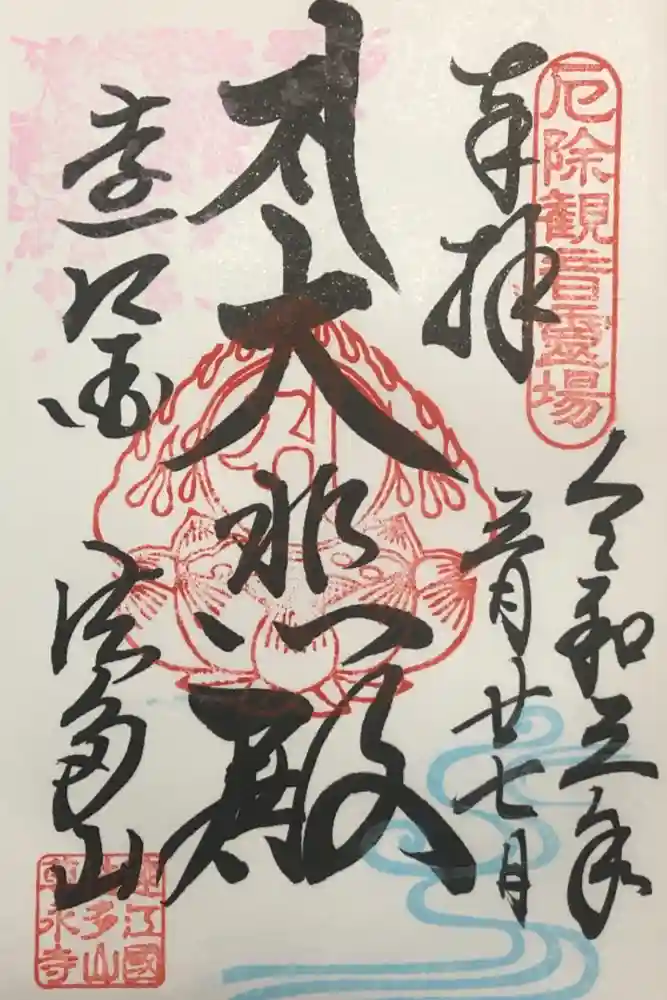 厄除観音靈場
奉拝
令和三年
三月廿七日
大悲殿
遠江国
法多山
遠江國
法多山
尊永寺